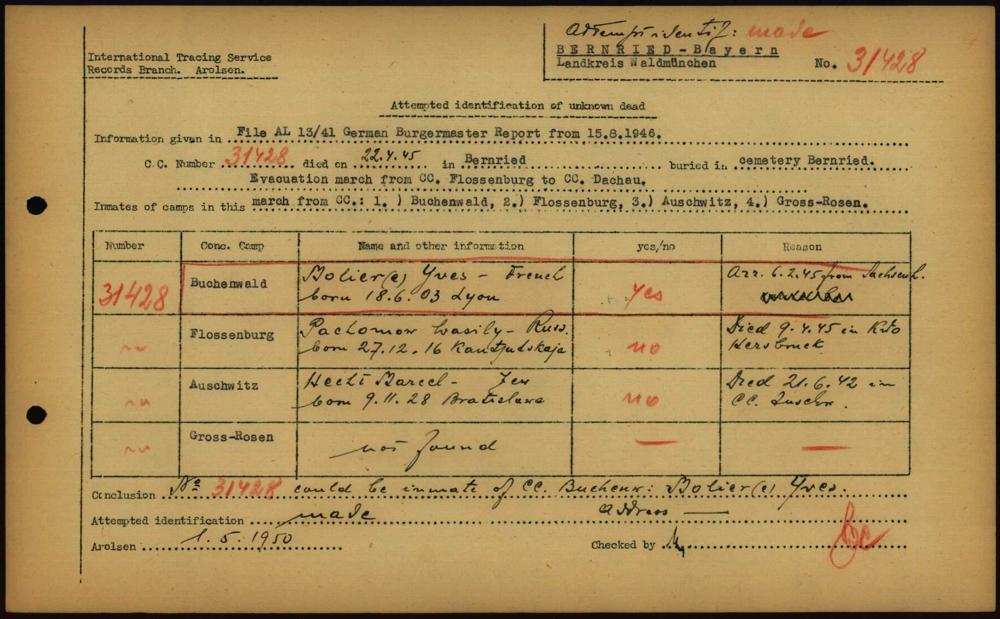 Attempt identif: made
International Tracing Service
Records Branch. Arolsen.
BERNRIED-Bayern
Landkreis Waldmünchen
No. 31428
Attempted identification of unknown dead
Information given in File AL 13/41 German Burgermaster Report from 15.8.1946.
C.C. Number 31428 died on 22.4.45 in Bernried buried in cemetery Bernried.
Evacuation march from CC. Flossenburg to CC. Dachau.
Inmates of camps in this march from CC.: 1. ) Buchenwald, 2.) Flossenburg, 3.) Auschwitz, 4.) Gross-Rosen.
Number Conc. Camp Name and other information yes/no Reason
31428 Buchenwald Bolier(e) Yves - French born 18.6.03 Lyon yes Arr. 6.2.45 from Sachsenh.
" Flossenburg Pachomow Wasily - Russ. born 27.12.16 no Died 9.4.45 in Kdo Hersbruck
" Auschwitz Hecht Marcel - Jew born 9.11.28 Bratislava no Died 21.6.42 in CC. Auschw.
" Gross-Rosen not found — —
Conclusion No 31428 could be inmate of CC. Buchenw: Bolier(e) Yves.
Attempted identification made Address —
Arolsen 1.5.1950 Checked by